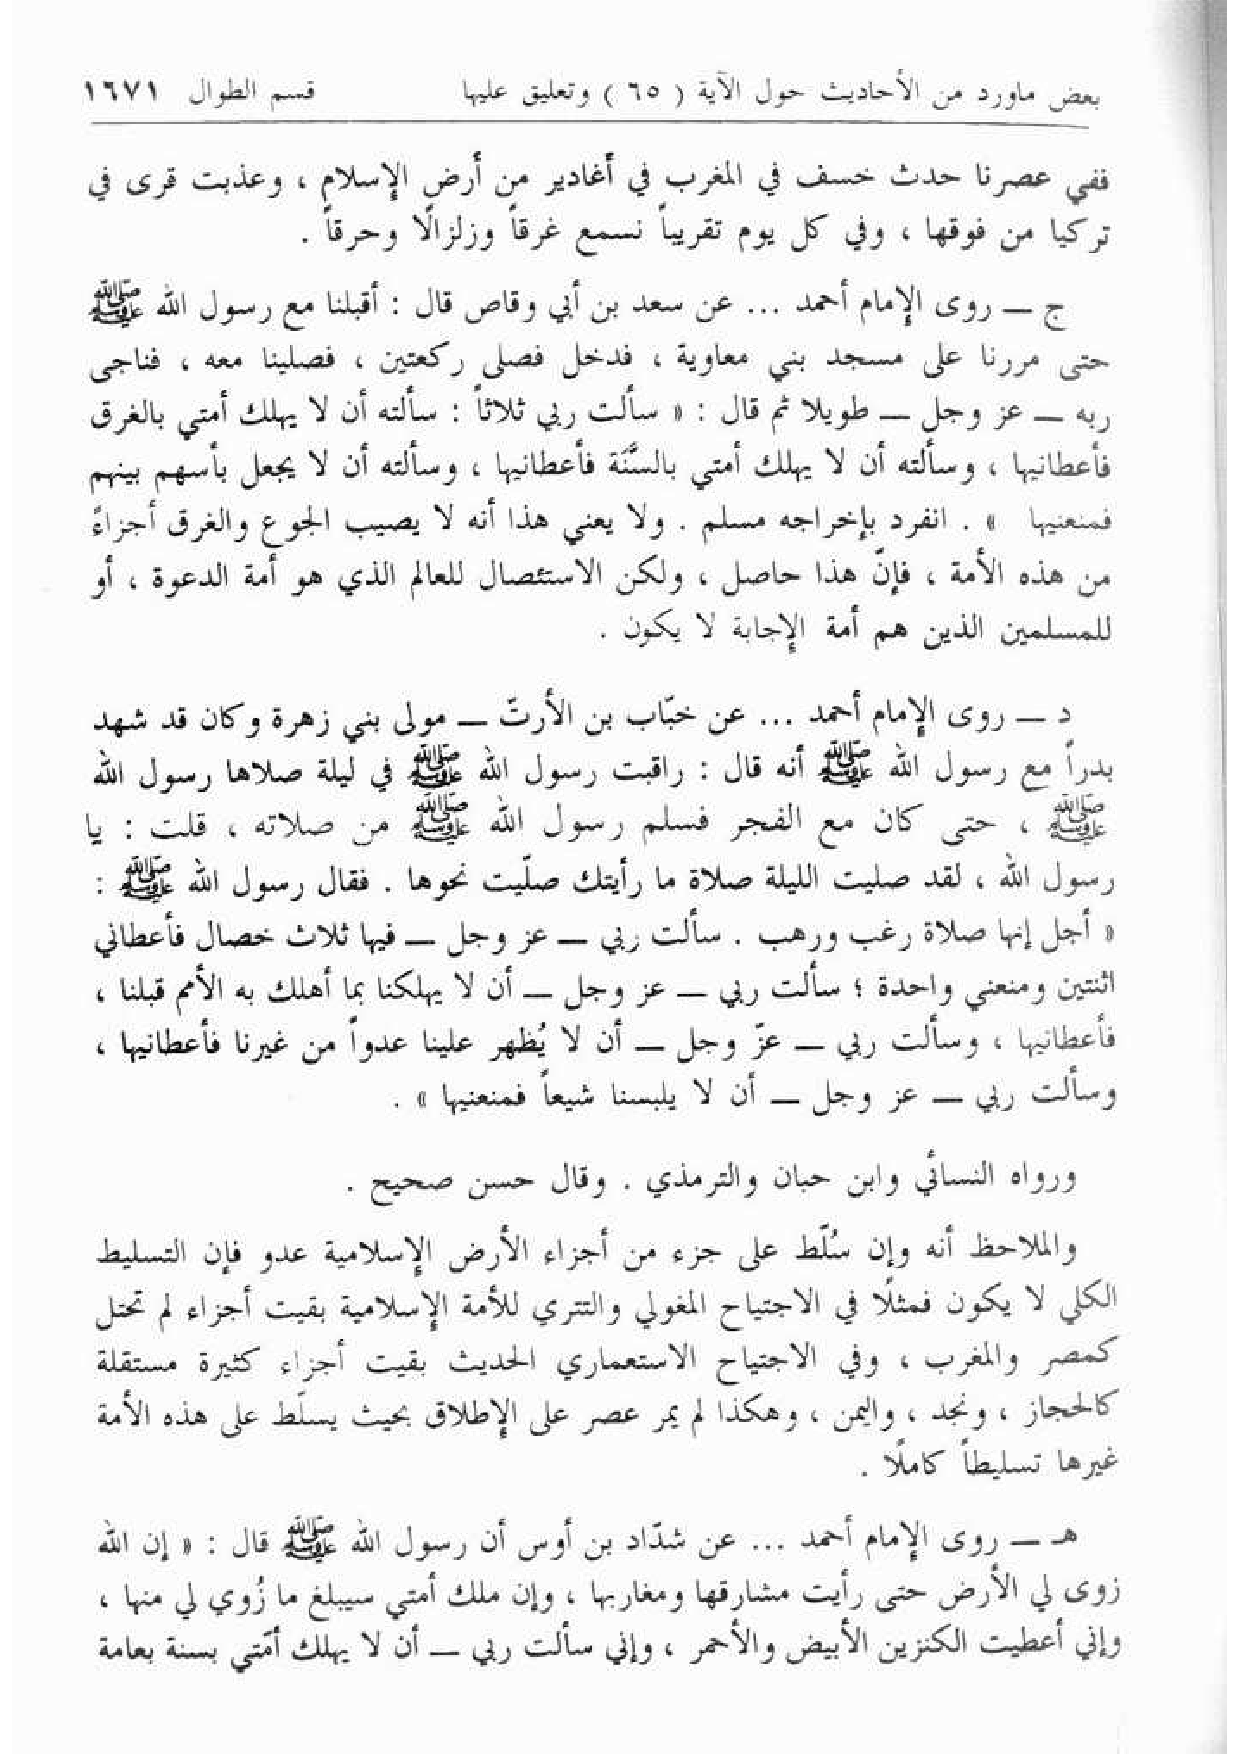 بعض ماورد من الأحاديث حول الآية ( ٦٥ ) وتعليق عليها قسم الطوال ١٦٧١
ففي عصرنا حدث خسف في المغرب في أغادير من أرض الإسلام ، وعذبت قرى في
تركيا من فوقها ، وفي كل يوم تقريباً نسمع غرقاً وزلزالًا وحرقاً .
ج ــ روى الإمام أحمد ... عن سعد بن أبي وقاص قال : أقبلنا مع رسول الله ﷺ
حتى مررنا على مسجد بني معاوية ، فدخل فصلى ركعتين ، فصلينا معه ، فناجى
ربه ــ عز وجل ــ طويلا ثم قال : « سألت ربي ثلاثاً : سألته أن لا يهلك أمتي بالغرق
فأعطانيها ، وسألته أن لا يهلك أمتي بالسَّنَة فأعطانيها ، وسألته أن لا يجعل بأسهم بينهم
فمنعنيها » . انفرد بإخراجه مسلم . ولا يعني هذا أنه لا يصيب الجوع والغرق أجزاءً
من هذه الأمة ، فإنّ هذا حاصل ، ولكن الاستئصال للعالم الذي هو أمة الدعوة ، أو
للمسلمين الذين هم أمة الإجابة لا يكون .
د ــ روى الإمام أحمد ... عن خبّاب بن الأرتّ ــ مولى بني زهرة وكان قد شهد
بدراً مع رسول الله ﷺ أنه قال : راقبت رسول الله ﷺ في ليلة صلاها رسول الله
ﷺ ، حتى كان مع الفجر فسلم رسول الله ﷺ من صلاته ، قلت : يا
رسول الله ، لقد صليت الليلة صلاة ما رأيتك صلّيت نحوها . فقال رسول الله ﷺ :
« أجل إنها صلاة رغب ورهب . سألت ربي ــ عز وجل ــ فيها ثلاث خصال فأعطاني
اثنتين ومنعني واحدة ؛ سألت ربي ــ عز وجل ــ أن لا يهلكنا بما أهلك به الأمم قبلنا ،
فأعطانيها ، وسألت ربي ــ عزّ وجل ــ أن لا يُظهر علينا عدواً من غيرنا فأعطانيها ،
وسألت ربي ــ عز وجل ــ أن لا يلبسنا شيعاً فمنعنيها » .
ورواه النسائي وابن حبان والترمذي . وقال حسن صحيح .
والملاحظ أنه وإن سُلّط على جزء من أجزاء الأرض الإسلامية عدو فإن التسليط
الكلي لا يكون فمثلًا في الاجتياح المغولي والتتري للأمة الإسلامية بقيت أجزاء لم تحتل
كمصر والمغرب ، وفي الاجتياح الاستعماري الحديث بقيت أجزاء كثيرة مستقلة
كالحجاز ، ونجد ، واليمن ، وهكذا لم يمر عصر على الإطلاق بحيث يسلّط على هذه الأمة
غيرها تسليطاً كاملًا .
هـ ــ روى الإمام أحمد ... عن شدّاد بن أوس أن رسول الله ﷺ قال : « إن الله
زوى لي الأرض حتى رأيت مشارقها ومغاربها ، وإن ملك أمتي سيبلغ ما زُوي لي منها ،
وإني أعطيت الكنزين الأبيض والأحمر ، وإني سألت ربي ــ أن لا يهلك أمّتي بسنة بعامة